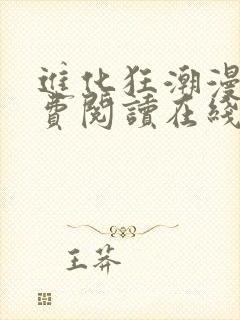 進化狂潮漫
費閱讀在綫
王莽